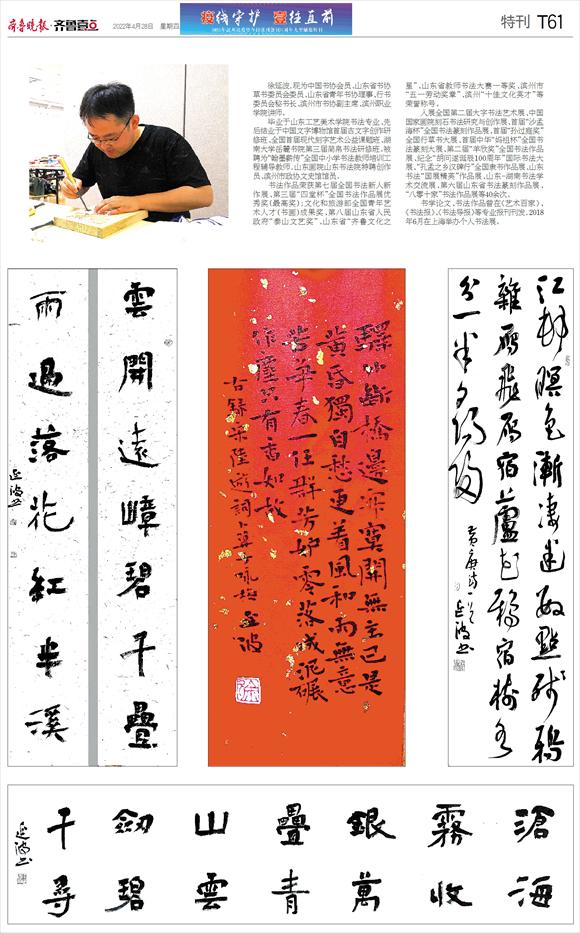 齐鲁晚报·齐鲁壹点
2022年4月28日 星期四
疫线守护 壹往直前
特刊 T61
徐延波，现为中国书协会员、山东省书协
草书委员会委员、山东省青年书协理事、行书
委员会秘书长、滨州市书协副主席、滨州职业
学院讲师。
毕业于山东工艺美术学院书法专业，先
后结业于中国文字博物馆首届古文字创作研
修班、全国首届现代刻字艺术公益课题班、湖
南大学岳麓书院第三届简帛书法研修班。被
聘为“翰墨薪传”全国中小学书法教师培训工
程辅导教师、山东画院山东书法院特聘创作
员、滨州市政协文史馆馆员。
书法作品荣获第七届全国书法新人新
作展、第三届“四堂杯”全国书法作品展优
秀奖（最高奖）；文化和旅游部全国青年艺
术人才（书画）成果奖、第八届山东省人民
政府“泰山文艺奖”、山东省“齐鲁文化之
星”、山东省教师书法大赛一等奖、滨州市
“五一劳动奖章”、滨州“十佳文化英才”等
荣誉称号。
入展全国第二届大字书法艺术展、中国
国家画院刻石书法研究与创作展、首届“沙孟
海杯”全国书法篆刻作品展、首届“孙过庭奖”
全国行草书大展、首届中华“妈祖杯”全国书
法篆刻大展、第二届“羊欣奖”全国书法作品
展、纪念“胡问遂诞辰100周年”国际书法大
展、“孔孟之乡汉碑行”全国隶书作品展、山东
书法“国展精英”作品展、山东-湖南书法学
术交流展、第六届山东省书法篆刻作品展、
“八零十家”书法作品展等40余次。
书学论文、书法作品曾在《艺术百家》、
《书法报》、《书法导报》等专业报刊刊发，2018
年6月在上海举办个人书法展。
雲開遠嶂碧千疊
雨過落花紅半溪
延波書
驛外斷橋邊寂寞開無主已是
黃昏獨自愁更着風和雨無意
苦爭春一任群芳妒零落成泥碾
作塵只有香如故
右錄宋陸遊詞卜算子咏梅 延波
江村暝色漸凄迷數點殘鴉
雜雁飛雁宿蘆花鴉宿樹各
分一半夕陽歸
黃庚詩一首 延波書
滄海
霧收
銀萬
疊青
山雲
劒碧
千尋
延波書